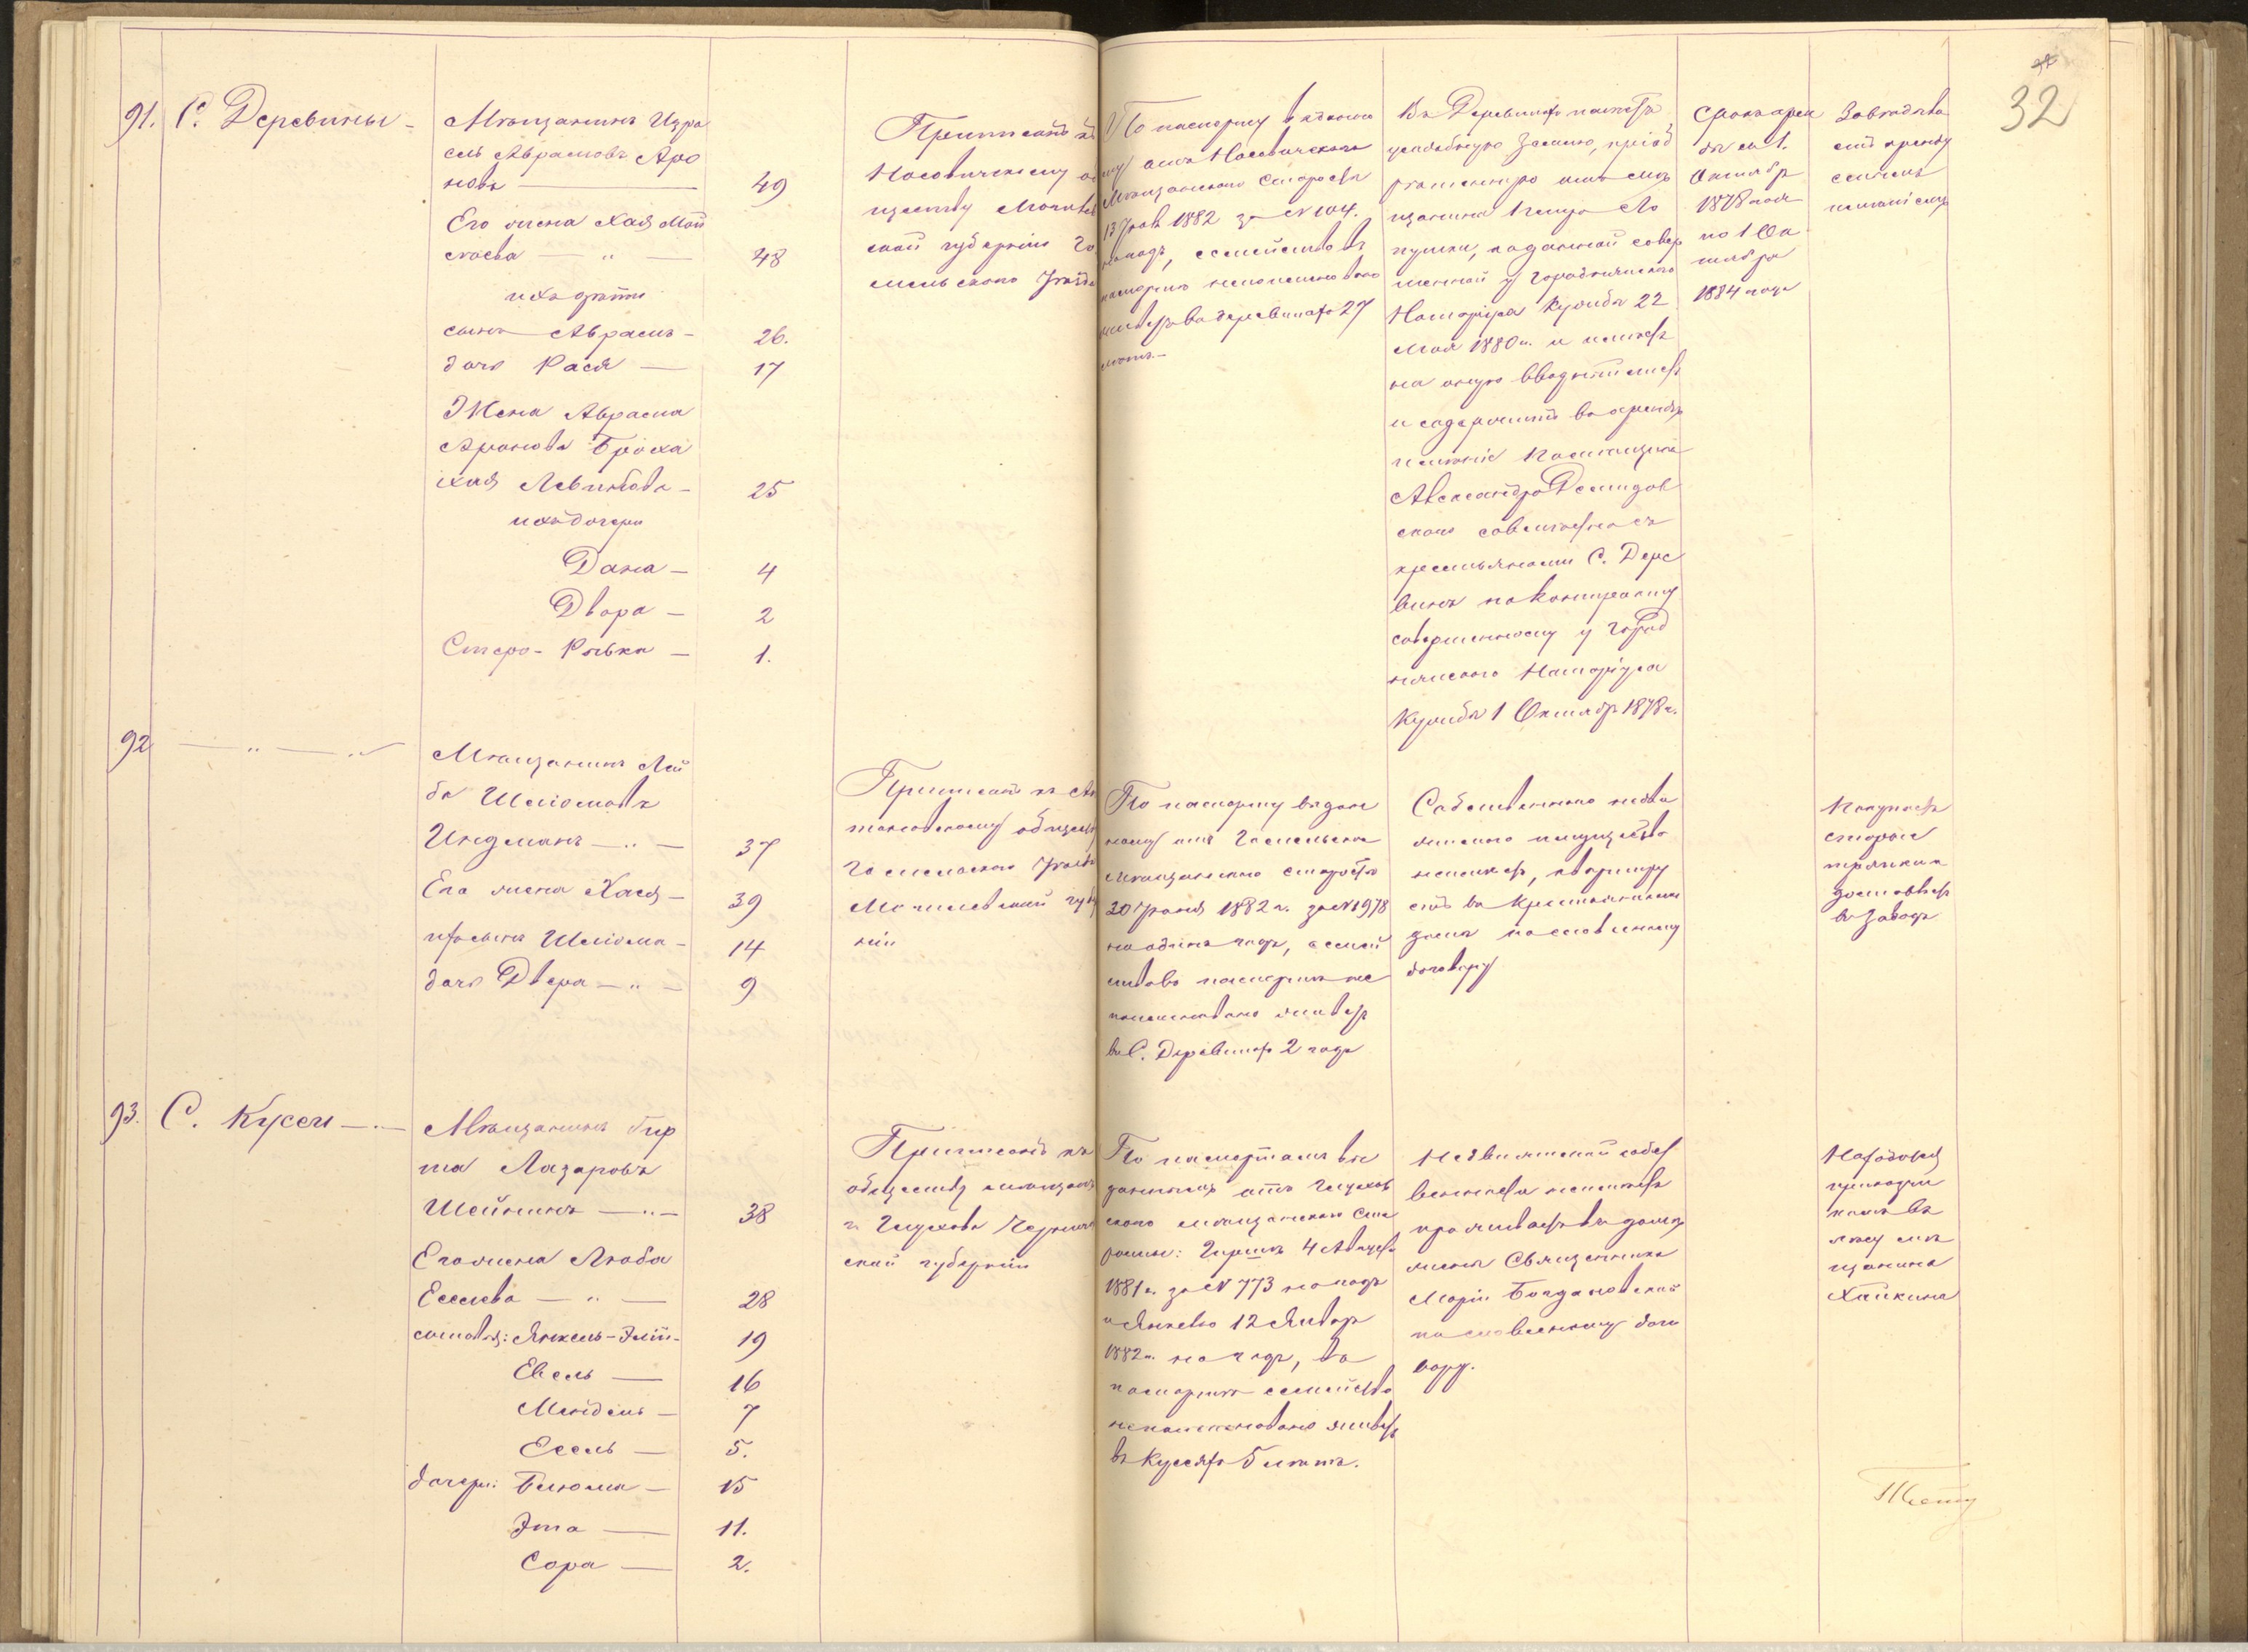 32
91. С. Деревины -
Мѣщанинъ Изра
ель Абрамовъ Аро
новъ — 49
Его жена Хая Мой
сеева — " — 48
ихъ дѣти
сынъ Абрамъ - 26.
дочь Рася — 17
Жена Абрама
Аронова Броха
Хая Левикова - 25
ихъ дочери
Дана - 4
Двора - 2
Стеро-Ривка - 1.
Приписанъ къ
Носовичскому об
ществу Могилев
ской губерніи Го
мельскаго уѣзда
По паспорту выданно
му отъ Носовичскаго
Мѣщанскаго Старосты
1882 за № 104.
на годъ, семейство въ
паспортѣ непоименовано
живетъ въ деревинахъ 27
лѣтъ. -
Въ Деревинахъ имѣетъ
усадебную землю, пріоб
рѣтенную отъ мѣ
щанина
по данной совер
шенной у Городнянскаго
Нотаріуса Кулибы 22
Мая 1880 г. и имѣетъ
на оную вводный листъ
и содержитъ въ арендѣ
имѣніе Помѣщика
Александра Демидов
скаго совмѣстно съ
крестьянами С. Дере
винъ по контракту
совершенному у Город
нянскаго Нотаріуса
Кулибы 1 Октября 1878 г.
Срокъ арен
ды съ 1.
Октября
1878 года
по 1 Ок
тября
1884 года
Завѣдыва
етъ аренду
емымъ
имѣніемъ
92 — " — " —
Мѣщанинъ Лей
ба Шліомовъ
Индманъ — " — 37
Его жена Хася - 39
ихъ сынъ Шліома - 14
дочь Двера — " — 9
Приписанъ къ
обществу
Гомельскаго уѣзда
Могилевской губер
ніи
По паспорту выдан
ному отъ Гомельскаго
Мѣщанскаго старосты
30 Іюня 1882 г. за № 1978
на одинъ годъ, семей
ство въ паспортѣ не
поименовано живетъ
въ С. Деревинахъ 2 года
Собственнаго недви
жимаго имущества
неимѣетъ, квартиру
етъ въ Крестьянскомъ
домѣ по словесному
договору
Покупаетъ
старые
тряпки и
доставляетъ
въ заводъ
93. С. Кусеи — " —
Мѣщанинъ Гир
ша Лазаровъ
Шейнинъ — " — 38
Его жена Люба
Еселева — " — 28
сыновья: Янкель-Элій - 19
Евель — 16
Мендель - 7
Есель — 5.
дочери: Блюма - 15
Эта — 11.
Сора — 2.
Приписанъ къ
обществу мѣщанъ
г. Глухова Чернигов
ской губерніи
По паспортамъ вы
даннымъ отъ Глухов
скаго мѣщанскаго Ста
росты: Гиршѣ 4 Августа
1881 г. за № 773 на годъ
и Янкелю 12 Января
1882 г. на годъ, въ
паспортѣ семейство
непоименовано живетъ
въ Кусеяхъ 5 лѣтъ.
Недвижимой собст
венности неимѣетъ
проживаетъ въ домѣ
жены Священника
Маріи Богдановской
по словесному дого
вору.
Находится
прикащи
комъ въ
лѣсу мѣ
щанина
Хайкина